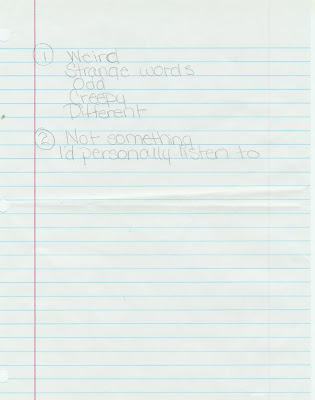 1 Weird
Strange words
Odd
Creepy
Different
2 Not something
I'd personally listen to